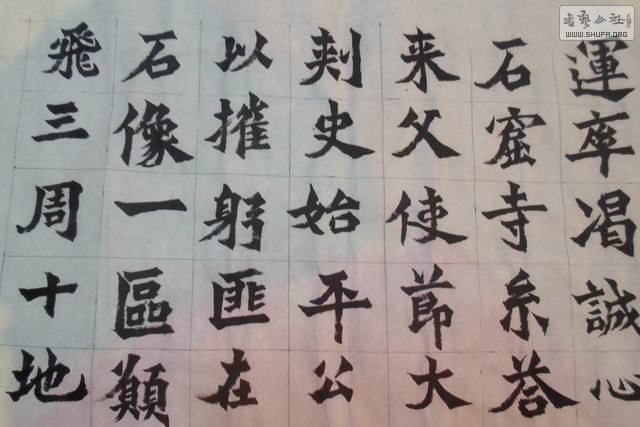 運率渴誠心
石窟寺糸荅
来父使莭大
刾史始平公
以摧躬匪在
石像一區願
飛三周十地
書藝公社
WWW.SHUFA.ORG